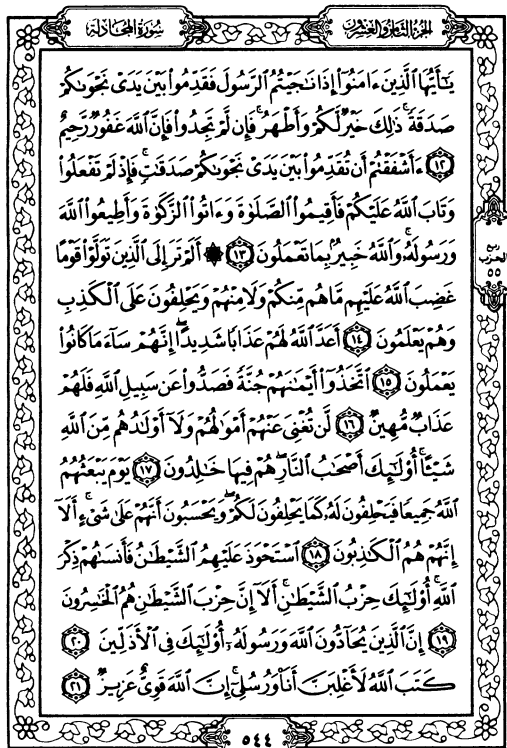 الجزء الثامن والعشرون
سورة المجادلة
يَٰٓأَيُّهَا ٱلَّذِينَ ءَامَنُوٓاْ إِذَا نَٰجَيۡتُمُ ٱلرَّسُولَ فَقَدِّمُواْ بَيۡنَ يَدَيۡ نَجۡوَىٰكُمۡ
صَدَقَةٗۚ ذَٰلِكَ خَيۡرٞ لَّكُمۡ وَأَطۡهَرُۚ فَإِن لَّمۡ تَجِدُواْ فَإِنَّ ٱللَّهَ غَفُورٞ رَّحِيمٌ
١٢ ءَأَشۡفَقۡتُمۡ أَن تُقَدِّمُواْ بَيۡنَ يَدَيۡ نَجۡوَىٰكُمۡ صَدَقَٰتٖۚ فَإِذۡ لَمۡ تَفۡعَلُواْ
وَتَابَ ٱللَّهُ عَلَيۡكُمۡ فَأَقِيمُواْ ٱلصَّلَوٰةَ وَءَاتُواْ ٱلزَّكَوٰةَ وَأَطِيعُواْ ٱللَّهَ
وَرَسُولَهُۥۚ وَٱللَّهُ خَبِيرُۢ بِمَا تَعۡمَلُونَ ١٣ ۞ أَلَمۡ تَرَ إِلَى ٱلَّذِينَ تَوَلَّوۡاْ قَوۡمًا
غَضِبَ ٱللَّهُ عَلَيۡهِم مَّا هُم مِّنكُمۡ وَلَا مِنۡهُمۡ وَيَحۡلِفُونَ عَلَى ٱلۡكَذِبِ
وَهُمۡ يَعۡلَمُونَ ١٤ أَعَدَّ ٱللَّهُ لَهُمۡ عَذَابٗا شَدِيدًاۖ إِنَّهُمۡ سَآءَ مَا كَانُواْ
يَعۡمَلُونَ ١٥ ٱتَّخَذُوٓاْ أَيۡمَٰنَهُمۡ جُنَّةٗ فَصَدُّواْ عَن سَبِيلِ ٱللَّهِ فَلَهُمۡ
عَذَابٞ مُّهِينٞ ١٦ لَّن تُغۡنِيَ عَنۡهُمۡ أَمۡوَٰلُهُمۡ وَلَآ أَوۡلَٰدُهُم مِّنَ ٱللَّهِ
شَيۡـًٔاۚ أُوْلَٰٓئِكَ أَصۡحَٰبُ ٱلنَّارِۖ هُمۡ فِيهَا خَٰلِدُونَ ١٧ يَوۡمَ يَبۡعَثُهُمُ
ٱللَّهُ جَمِيعٗا فَيَحۡلِفُونَ لَهُۥ كَمَا يَحۡلِفُونَ لَكُمۡ وَيَحۡسَبُونَ أَنَّهُمۡ عَلَىٰ شَيۡءٍۚ أَلَآ
إِنَّهُمۡ هُمُ ٱلۡكَٰذِبُونَ ١٨ ٱسۡتَحۡوَذَ عَلَيۡهِمُ ٱلشَّيۡطَٰنُ فَأَنسَىٰهُمۡ ذِكۡرَ
ٱللَّهِۚ أُوْلَٰٓئِكَ حِزۡبُ ٱلشَّيۡطَٰنِۚ أَلَآ إِنَّ حِزۡبَ ٱلشَّيۡطَٰنِ هُمُ ٱلۡخَٰسِرُونَ
١٩ إِنَّ ٱلَّذِينَ يُحَآدُّونَ ٱللَّهَ وَرَسُولَهُۥٓ أُوْلَٰٓئِكَ فِي ٱلۡأَذَلِّينَ ٢٠
كَتَبَ ٱللَّهُ لَأَغۡلِبَنَّ أَنَا۠ وَرُسُلِيٓۚ إِنَّ ٱللَّهَ قَوِيٌّ عَزِيزٞ ٢١
ربع
الحزب
٥٥
٥٤٤